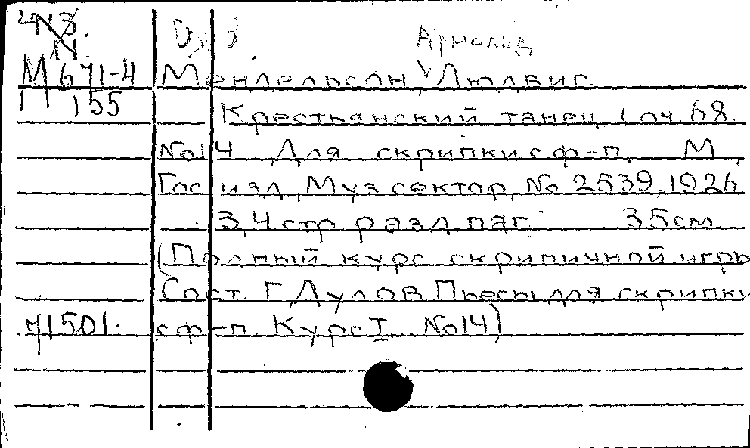 М 671-4
155
Арнольд
Мендельсон Людвиг
Крестьянский танец (оч 68.
№14 Для скрипки с ф-п. М,
Гос изд, Муз сектор, № 2539, 1926
3,4 стр разд паг. 35 см
(Полный курс скрипичной игры
Сост. Г. Дулов Пьесы для скрипки
71501. с ф-п. Курс I №14)